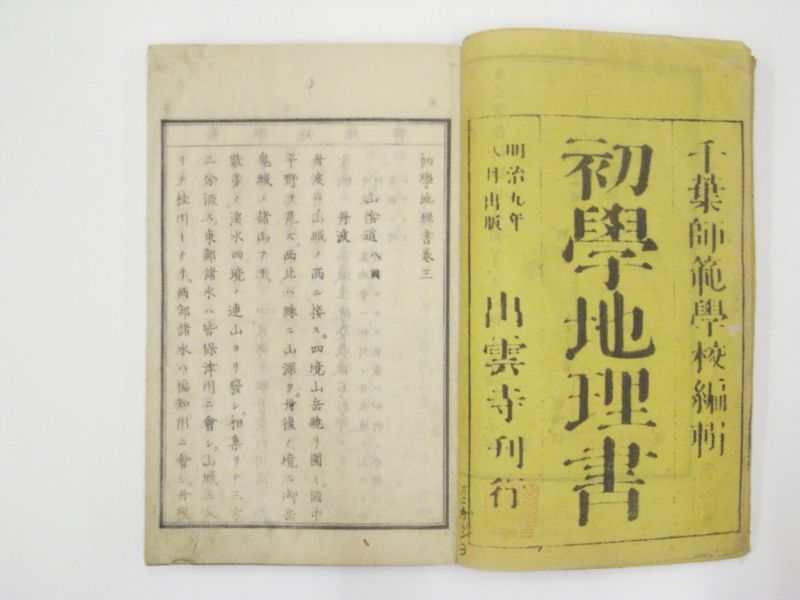 千葉師範學校編輯
初學地理書
明治九年
八月出版
出雲寺刊行
初學地理書卷三
山陰道 八國
丹波
丹波ハ山城ノ西ニ接ス。四境山岳繞リ圍ミ國中
平野ヲ見ズ。西北ハ殊ニ山深ク。丹後ノ境ニ御岳
鬼城ノ諸山アリ。
數多ノ溪水四境ノ連山ヨリ發シ。相集リテ三方
ニ分流ス。東部諸水ハ皆保津川ニ會シ。山城ニ入
リテ桂川トナリ。西部諸水ハ福知川ニ會シ。丹後